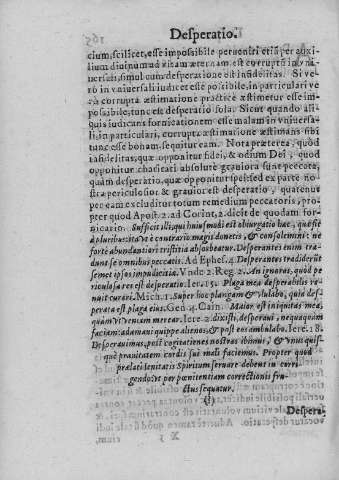 Desperatio.
cium, scilicet, esse impossibile perueniri etiā per auxi-
lium diuinum ad vitam æternam, est corruptū in vni-
uersali, simul cum desperatione est infidelitas. Si ve-
rò in vniuersali iudicet esse possibile, in particulari ve-
rò corrupta æstimatione practicè æstimetur esse im-
possibile, tunc est desperatio sola. Sicut quando ali-
quis iudicans fornicationem esse malam in vniuersa-
li, in particulari, corrupta æstimatione æstimans sibi
tunc esse bonam, sequitur eam. Nota præterea, quòd
infidelitas, quæ opponitur fidei, & odium Dei, quod
opponitur charitati absolutè grauiora sunt peccata,
quàm desperatio, quæ opponitur spei, sed ex parte no-
stra periculosior & grauior est desperatio, quatenus
per eam excluditur totum remedium peccatoris, pro-
pter quod Apost. 2. ad Corint. 2. dicit de quodam for-
nicario. Sufficit illi, qui huiusmodi est obiurgatio hæc, quæ fit
à pluribus: ita vt è contrario magis donetis, & consolemini: ne
fortè abundantiori tristitia absorbeatur. Desperantes enim tra-
dunt se omnibus peccatis. Ad Ephes. 4. Desperantes tradiderūt
semet ipsos impudicitiæ. Vnde 2. Reg. 2. An ignoras, quod pe-
riculosa res est desperatio. Iere. 15. Plaga mea desperabilis re-
nuit curari. Mich. 1. Super hoc plangam & vlulabo, quia des-
perata est plaga eius. Gen. 4. Cain. Maior est iniquitas mea,
quàm vt veniam merear. Iere. 2. dixisti, desperaui, nequaquàm
faciam: adamaui quippe alienos, & post eos ambulabo. Iere. 18.
Desperauimus, post cogitationes nostras ibimus, & vnusquis-
què prauitatem cordis sui mali faciemus. Propter quod
prælati lenitatis Spiritum seruare debent in corri-
gendo, vt per pœnitentiam correctionis fru-
ctus sequatur.
Despera-